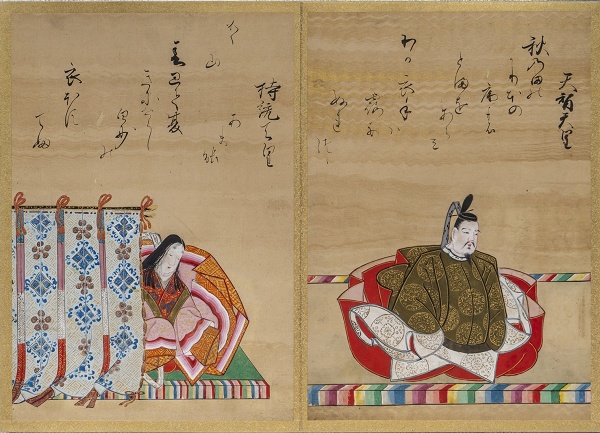 天智天皇
秋乃田の
かりほの
庵の
とまをあらミ
わか衣手ハ
露尓
ぬれ
つゝ
持統天皇
春過て夏
きにけらし
白妙の
衣ほす
てふ
山